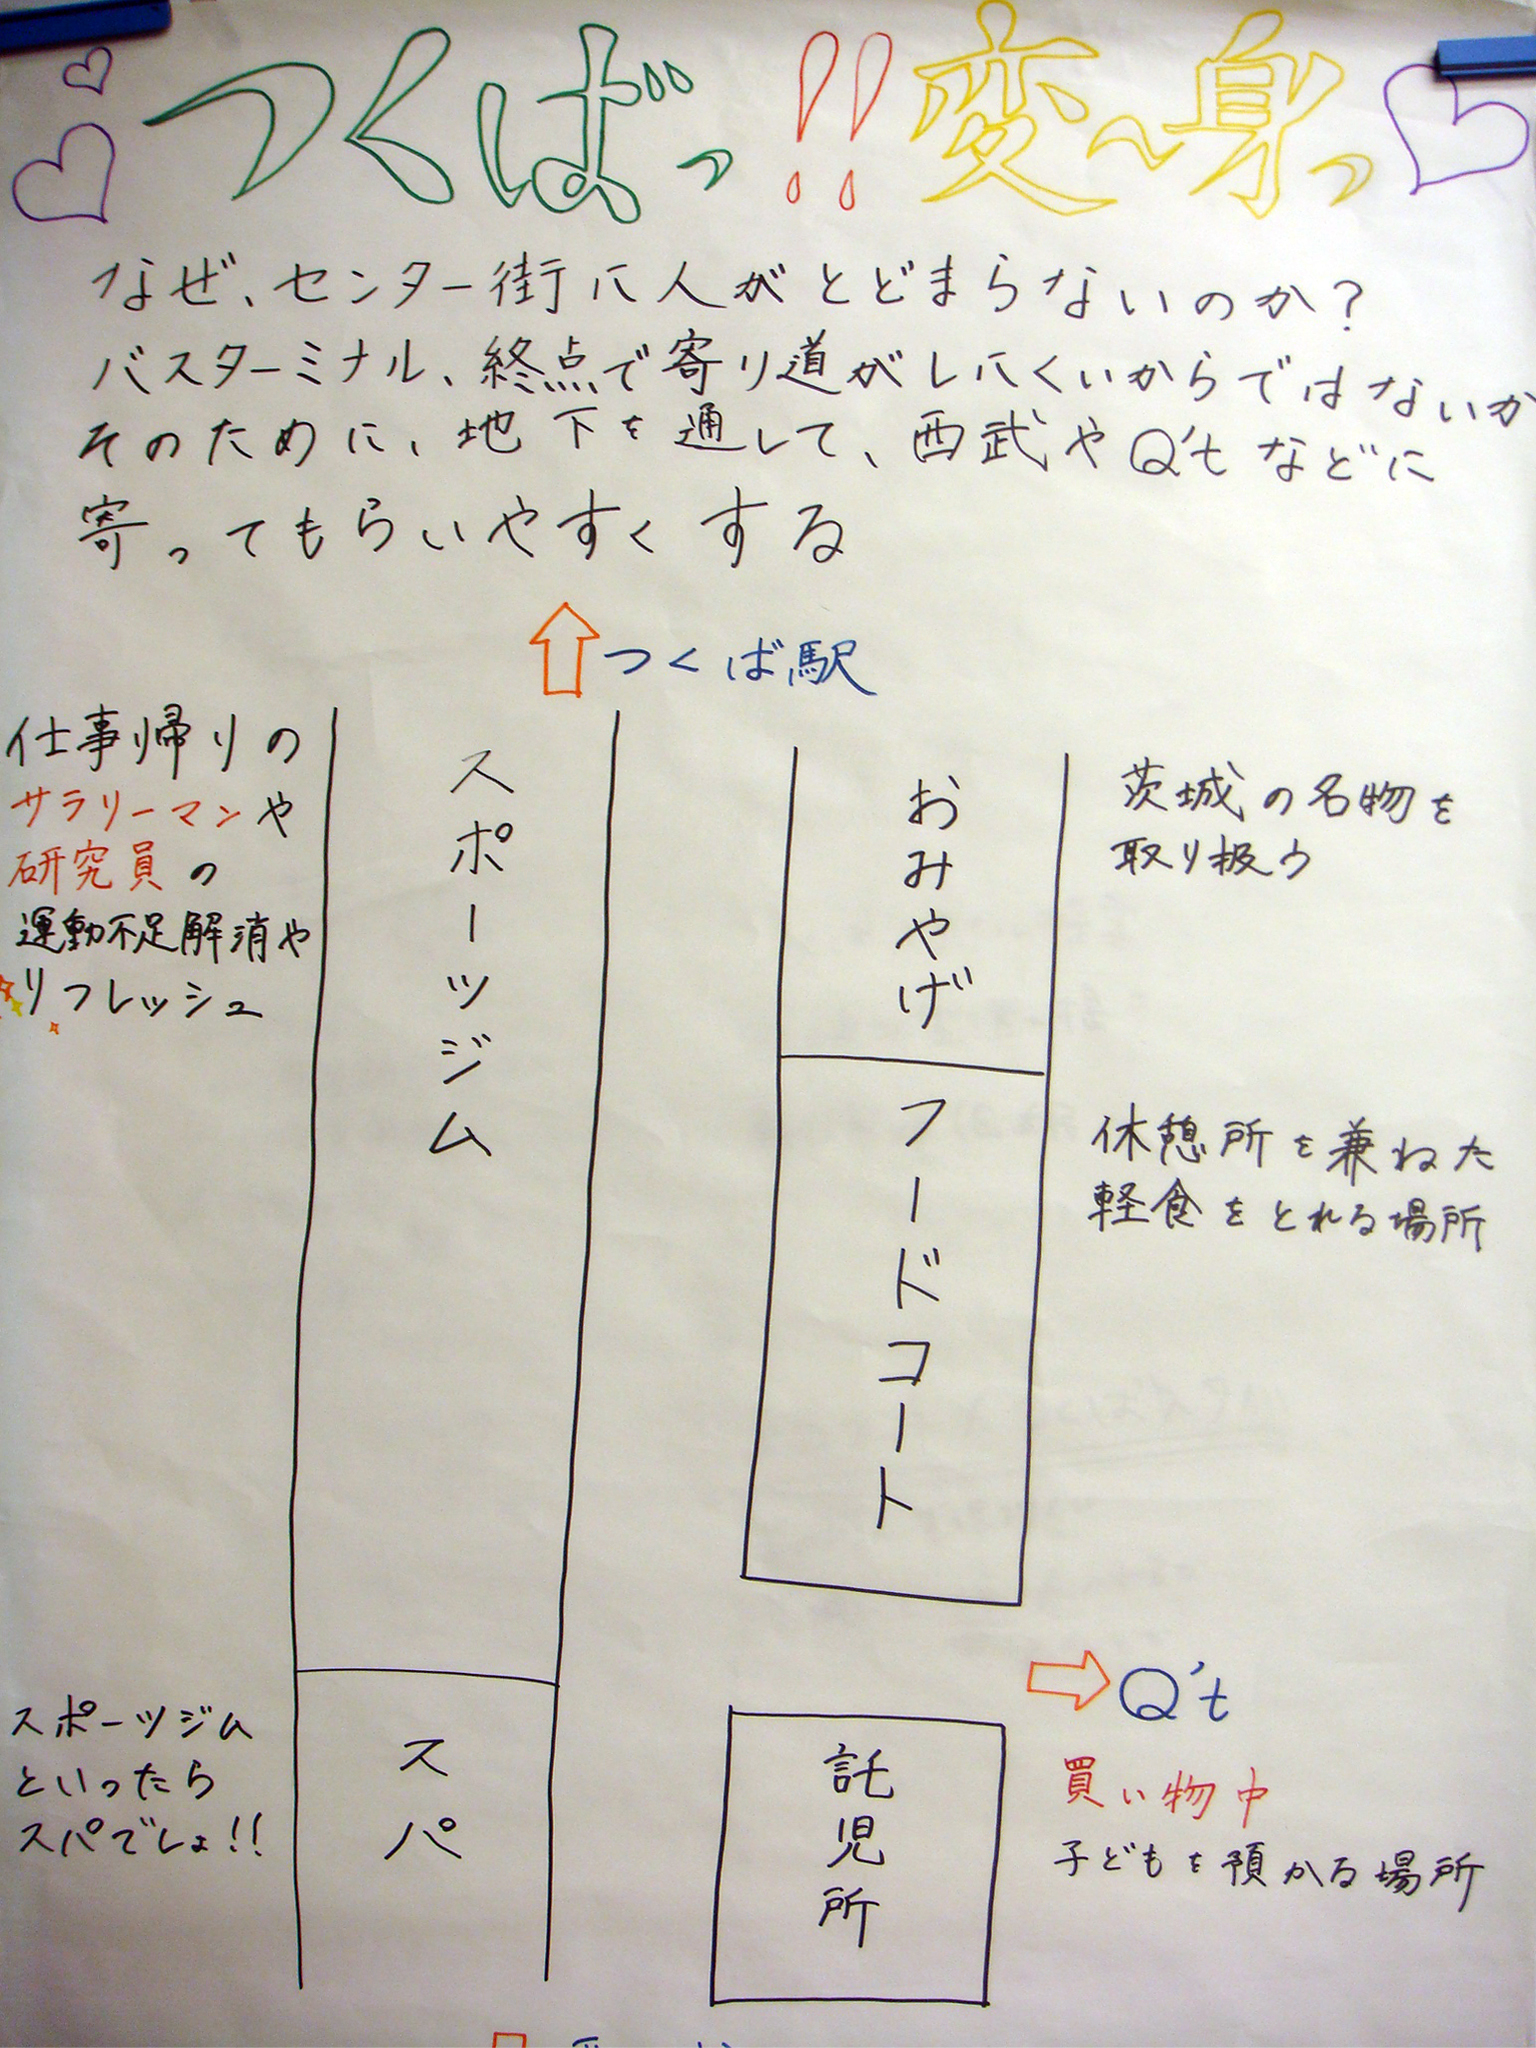 つくばっ!!変〜身っ
なぜ、センター街に人がとどまらないのか?
バスターミナル、終点で寄り道がしにくいからではないか
そのために、地下を通して、西武やQ'tなどに
寄ってもらいやすくする
つくば駅
仕事帰りの
サラリーマンや
研究員の
運動不足解消や
リフレッシュ
スポーツジム
おみやげ
茨城の名物を
取り扱う
フードコート
休憩所を兼ねた
軽食をとれる場所
スポーツジム
といったら
スパでしょ!!
スパ
託児所
Q't
買い物中
子どもを預かる場所